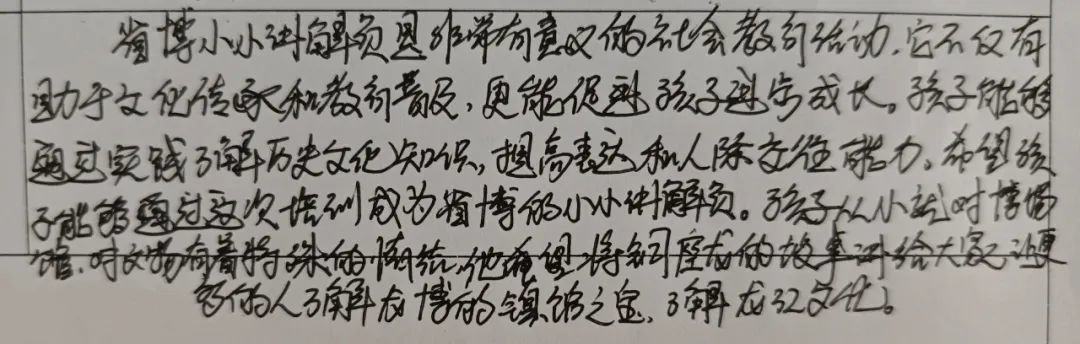 省博小小讲解员是非常有意义的社会教育活动,它不仅有
助于文化传承和教育普及,更能促进孩子进步成长。孩子能够
通过实践了解历史文化知识,提高表达和人际交往能力。希望孩
子能够通过这次培训成为省博的小小讲解员。孩子从小就对博物
馆,对文物有着特殊的情结,他希望将铜座龙的故事讲给大家,让更
多的人了解龙博的镇馆之宝,了解龙江文化。